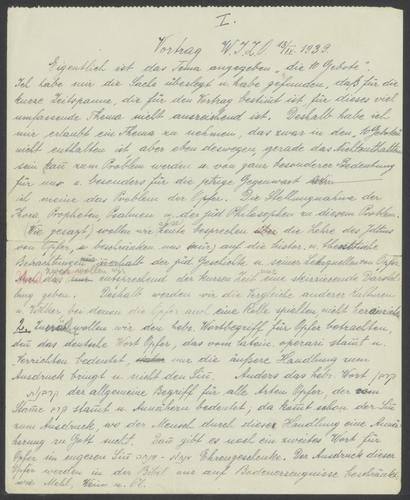 I.
Vortrag W.I.Z.O 13/IV. 1939.
Eigentlich ist das Tema angegeben „die 10 Gebote".
Ich habe mir die Sache überlegt u. habe gefunden, daß für die
kurze Zeitspanne, die für den Vortrag bestimt ist für dieses viel
umfassende Thema nicht ausreichend ist. Deshalb habe ich
mir erlaubt ein Thema zu nehmen, das zwar in den 10 Geboten
nicht enthalten ist aber eben deswegen, gerade das
sein kan zum Problem werden u. von ganz besonderer Bedeutung
für uns u. besonders für die jetzige Gegenwart
ich meine das Problem der Opfer. Die Stellungnahme der
Tora, Propheten, Psalmen u. der jüd. Philosophen zu diesem Problem.
(Wie gesagt) wollen wir heute besprechen die Lehre des Judentums
vom Opfer, u. beschränken uns nur auf die histor. u.
Betrachtungen innerhalb der jüd. Geschichte u. seinen Lehrquellen vom Opfer
Und das entsprechend der kurzen Zeit nur eine skizzierende Darstel-
lung geben. Deshalb werden wir die Vergleiche anderer Kulturen
u. Völker bei denen die Opfer auch eine Rolle spielten, nicht
Zunächst wollen wir den hebr. Wortbegriff für Opfer betrachten,
den das deutsche Wort Opfer, das vom latein. operari stamt u.
Verrichten bedeutet, nur die äußere Handlung zum
Ausdruck bringt u. nicht den Sin. Anders das hebr. Wort קרבן
der allgemeine Begriff für alle Arten Opfer, der vom
Stame קרב stamt u. Annähern bedeutet, da komt schon der Sin
zum Ausdruck, wo der Mensch durch diese Handlung eine Annä-
herung zu Gott sucht. Dan gibt es noch ein zweites Wort für
Opfer im engeren Sin מנחה Ehrengeschenke. Der Ausdruck dieser
Opfer werden in der Bibel nur auf Bodenerzeugnisse beschränkt
wie Mehl, Wein u. Öl.